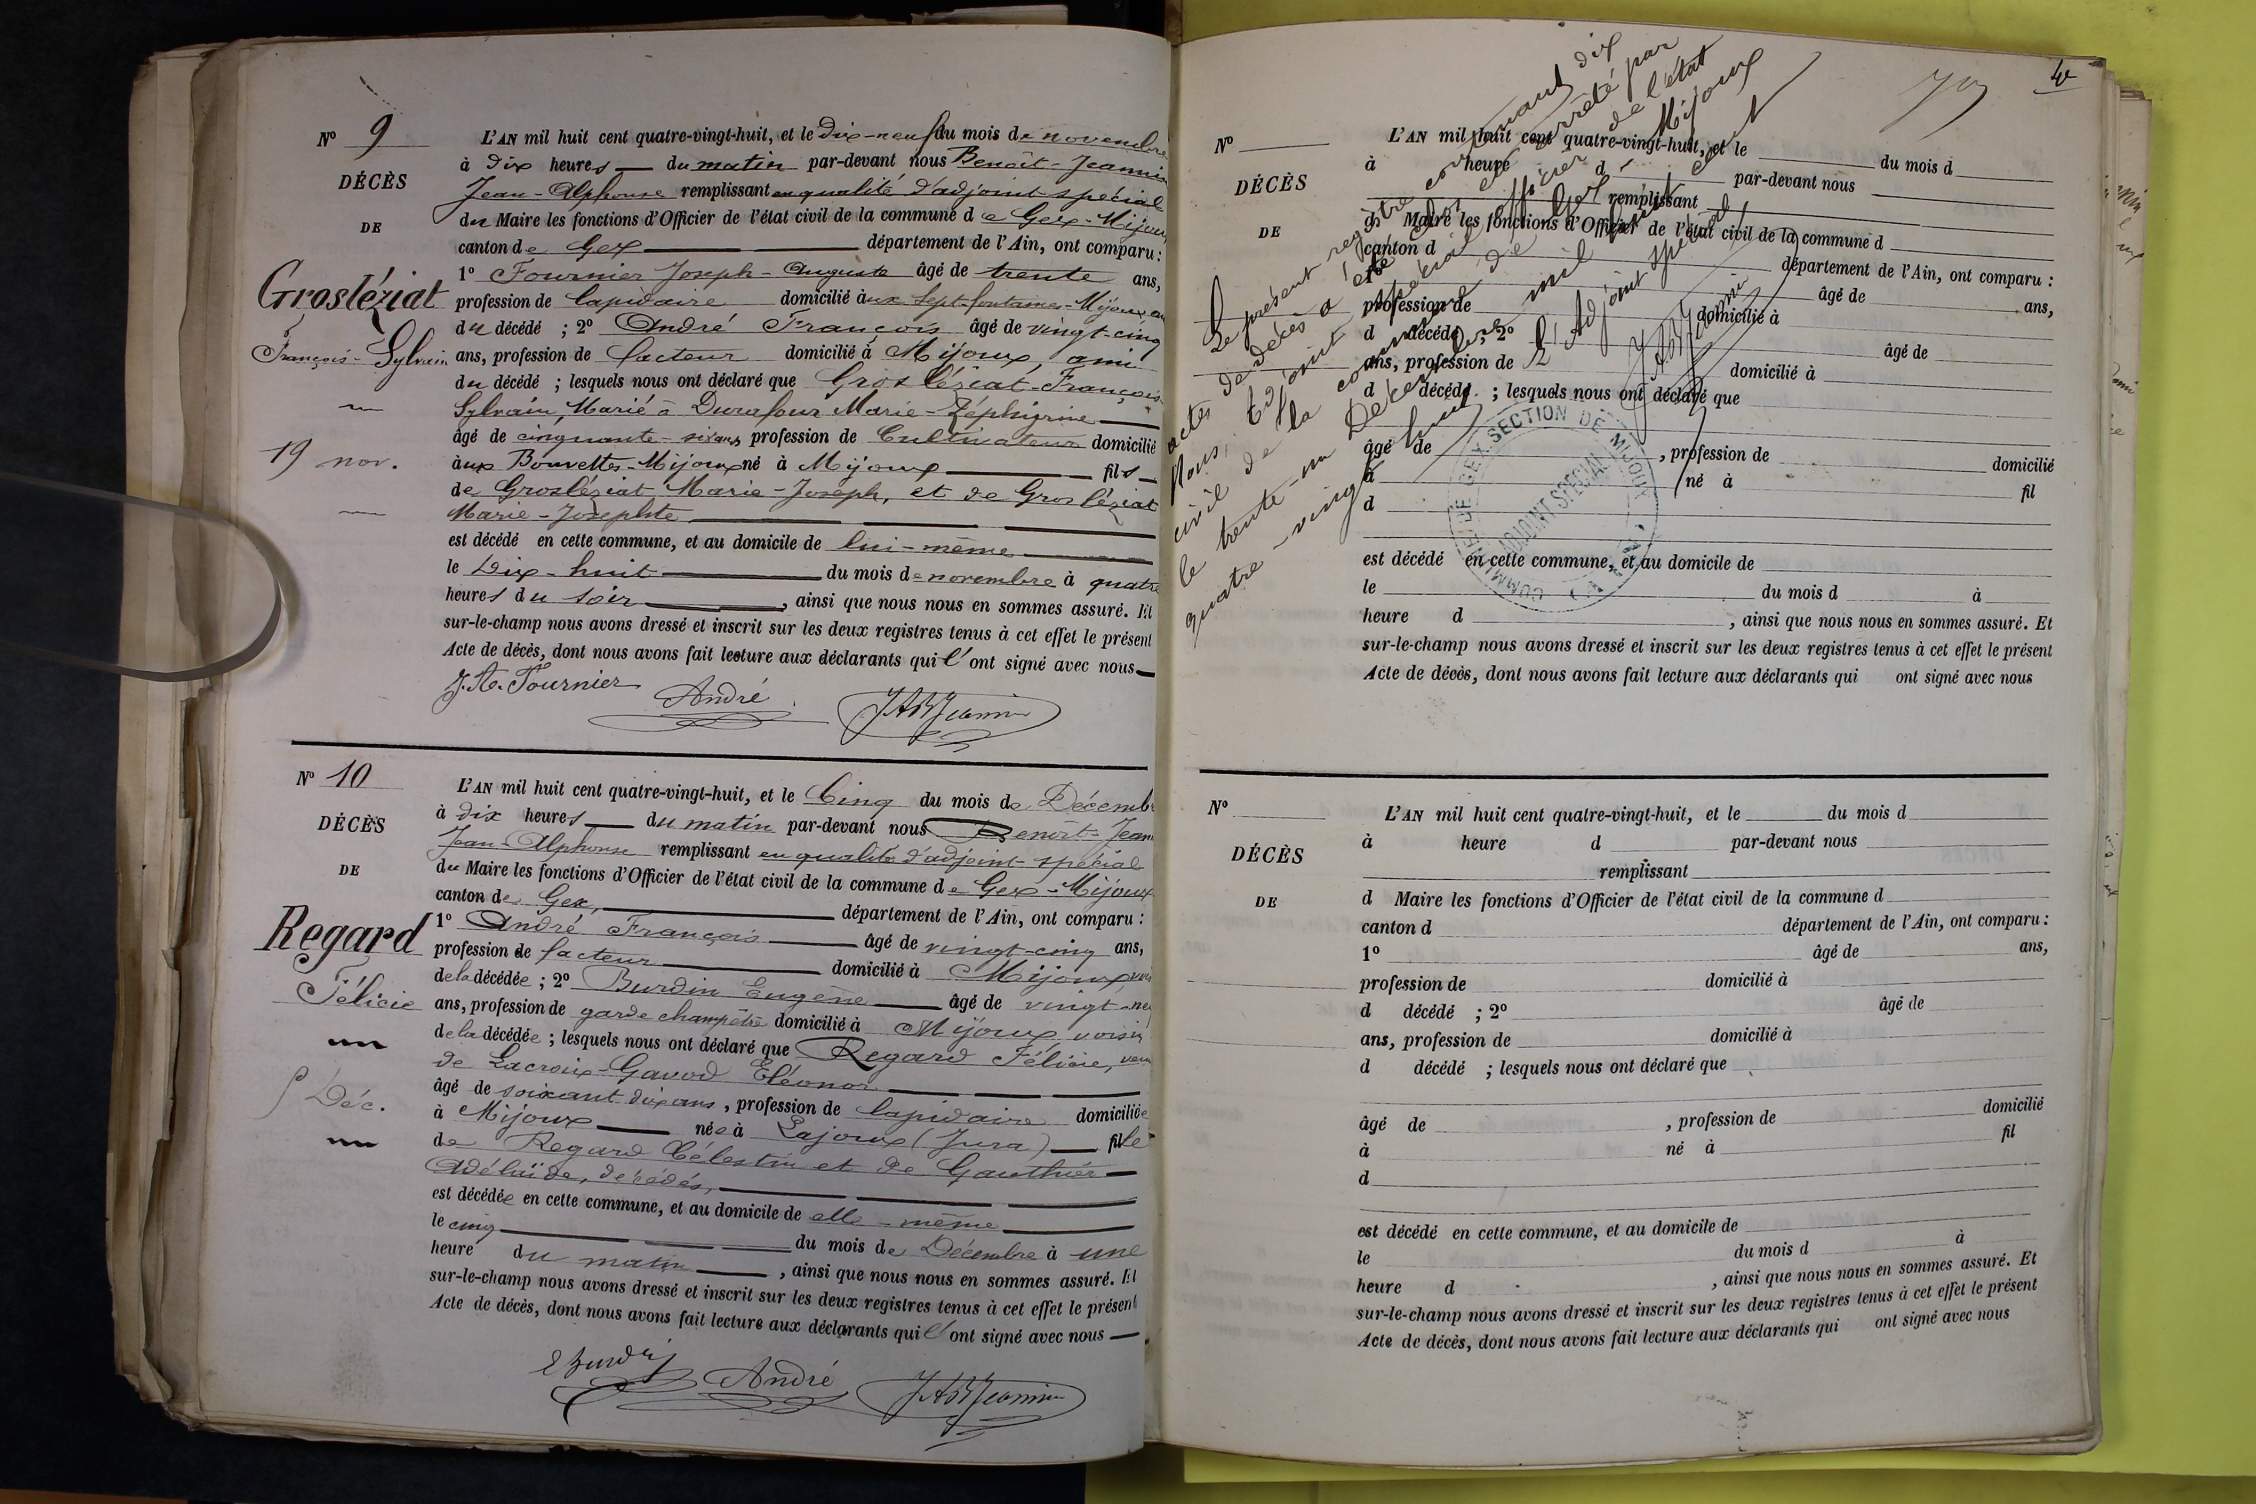 N° 9
DÉCÈS
DE
Grosléziat
François-Sylvain
19 nov.
L'AN mil huit cent quatre-vingt-huit, et le dix-neuf du mois de novembre
à dix heures du matin par-devant nous Benoît-Jeannin
Jean-Alphonse remplissant en qualité d'adjoint spécial
du Maire les fonctions d'Officier de l'état civil de la commune de Gex-Mijoux
canton de Gex département de l'Ain, ont comparu :
1° Fournier Joseph-Auguste âgé de trente ans,
profession de lapidaire domicilié aux Sept-fontaines-Mijoux
du décédé ; 2° André François âgé de vingt-cinq
ans, profession de facteur domicilié à Mijoux, ami
du décédé ; lesquels nous ont déclaré que Grosléziat-François-
Sylvain, Marié à Durafour Marie-Zéphirine
âgé de cinquante-six ans profession de Cultivateur domicilié
aux Bouvettes-Mijoux né à Mijoux fils
de Grosléziat Marie-Joseph, et de Grosléziat
Marie-Josephte
est décédé en cette commune, et au domicile de lui-même
le Dix-huit du mois de novembre à quatre
heures du soir, ainsi que nous nous en sommes assuré. Et
sur-le-champ nous avons dressé et inscrit sur les deux registres tenus à cet effet le présent
Acte de décès, dont nous avons fait lecture aux déclarants qui l'ont signé avec nous
J. A. Fournier André JABJeannin
N° 10
DÉCÈS
DE
Regard
Félicie
5 Déc.
L'AN mil huit cent quatre-vingt-huit, et le Cinq du mois de Décemb
à dix heures du matin par-devant nous Benoît-Jeann
Jean-Alphonse remplissant en qualité d'adjoint spécial
du Maire les fonctions d'Officier de l'état civil de la commune de Gex-Mijoux
canton de Gex, département de l'Ain, ont comparu :
1° André François âgé de vingt-cinq ans,
profession de facteur domicilié à Mijoux
de la décédée ; 2° Burdin Eugène âgé de vingt-neuf
ans, profession de garde champêtre domicilié à Mijoux voisin
de la décédée ; lesquels nous ont déclaré que Regard Félicie, veuve
de Lacroix-Gavod Eléonor
âgé de soixant dix ans, profession de lapidaire domiciliée
à Mijoux née à Lajoux (Jura) fille
de Regard Célestin et de Gauthier
Adélaïde, décédés,
est décédée en cette commune, et au domicile de elle-même
le cinq du mois de Décembre à une
heure du matin, ainsi que nous nous en sommes assuré. Et
sur-le-champ nous avons dressé et inscrit sur les deux registres tenus à cet effet le présent
Acte de décès, dont nous avons fait lecture aux déclarants qui l'ont signé avec nous
E Burdin André JABJeannin
Le présent registre contenant dix
actes de décès a été clos et arrêté par
Nous, Adjoint spécial officier de l'état
civil de la commune de Gex-Mijoux
le trente-un Décembre mil huit cent
quatre-vingt huit
L'Adjoint spécial
JABJeannin
COMMUNE DE GEX. SECTION DE MIJOUX (AIN)
ADJOINT SPÉCIAL
N°
DÉCÈS
DE
L'AN mil huit cent quatre-vingt-huit, et le du mois d
à heure d par-devant nous
remplissant
d Maire les fonctions d'Officier de l'état civil de la commune d
canton d département de l'Ain, ont comparu :
1° âgé de ans,
profession de domicilié à
d décédé ; 2° âgé de
ans, profession de domicilié à
d décédé ; lesquels nous ont déclaré que
âgé de , profession de domicilié
à né à fil
d
est décédé en cette commune, et au domicile de
le du mois d à
heure d , ainsi que nous nous en sommes assuré. Et
sur-le-champ nous avons dressé et inscrit sur les deux registres tenus à cet effet le présent
Acte de décès, dont nous avons fait lecture aux déclarants qui ont signé avec nous
N°
DÉCÈS
DE
L'AN mil huit cent quatre-vingt-huit, et le du mois d
à heure d par-devant nous
remplissant
d Maire les fonctions d'Officier de l'état civil de la commune d
canton d département de l'Ain, ont comparu :
1° âgé de ans,
profession de domicilié à
d décédé ; 2° âgé de
ans, profession de domicilié à
d décédé ; lesquels nous ont déclaré que
âgé de , profession de domicilié
à né à fil
d
est décédé en cette commune, et au domicile de
le du mois d à
heure d , ainsi que nous nous en sommes assuré. Et
sur-le-champ nous avons dressé et inscrit sur les deux registres tenus à cet effet le présent
Acte de décès, dont nous avons fait lecture aux déclarants qui ont signé avec nous